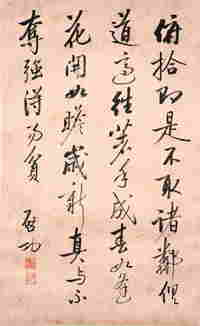 俯拾即是不取諸鄰俱
道適往著手成春如逢
花開如瞻歲新真与不
奪強得易貧
启功